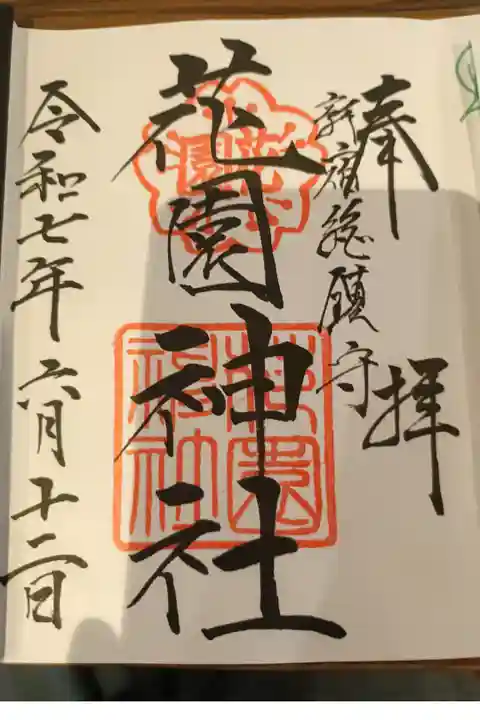 奉拝
新宿総鎮守
花園神社
花園神社
令和七年六月十二日